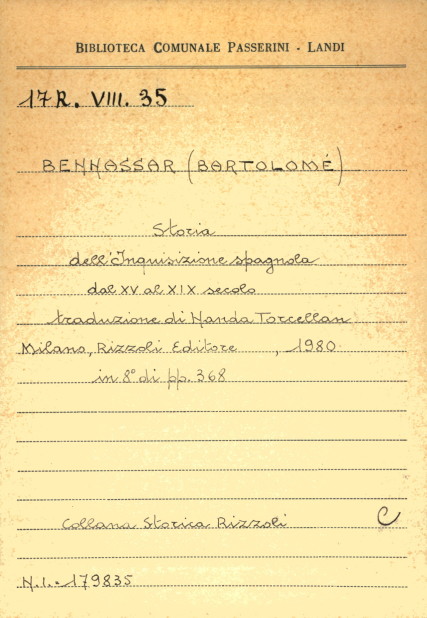 BIBLIOTECA COMUNALE PASSERINI - LANDI
17R. VIII. 35
BENNASSAR (BARTOLOMÉ)
Storia
dell'Inquisizione spagnola
dal XV al XIX secolo
traduzione di Nanda Torcellan
Milano, Rizzoli Editore , 1980
in 8° di pp. 368
Collana Storica Rizzoli C
N.I. - 179835